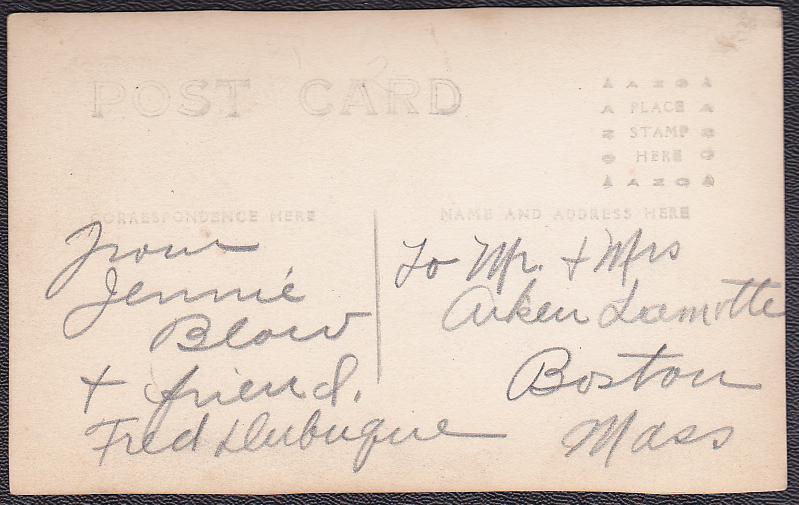 POST CARD
A A Z O A
A PLACE A
Z STAMP Z
O HERE O
A A Z O A
CORRESPONDENCE HERE
NAME AND ADDRESS HERE
From
Jennie
Blow
+ friend.
Fred Dubuque
To Mr. + Mrs
Aiken Lamotte
Boston
Mass